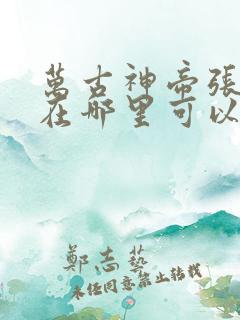 萬古神帝張
在哪里可以
鄭志藝
未经同意禁止转载